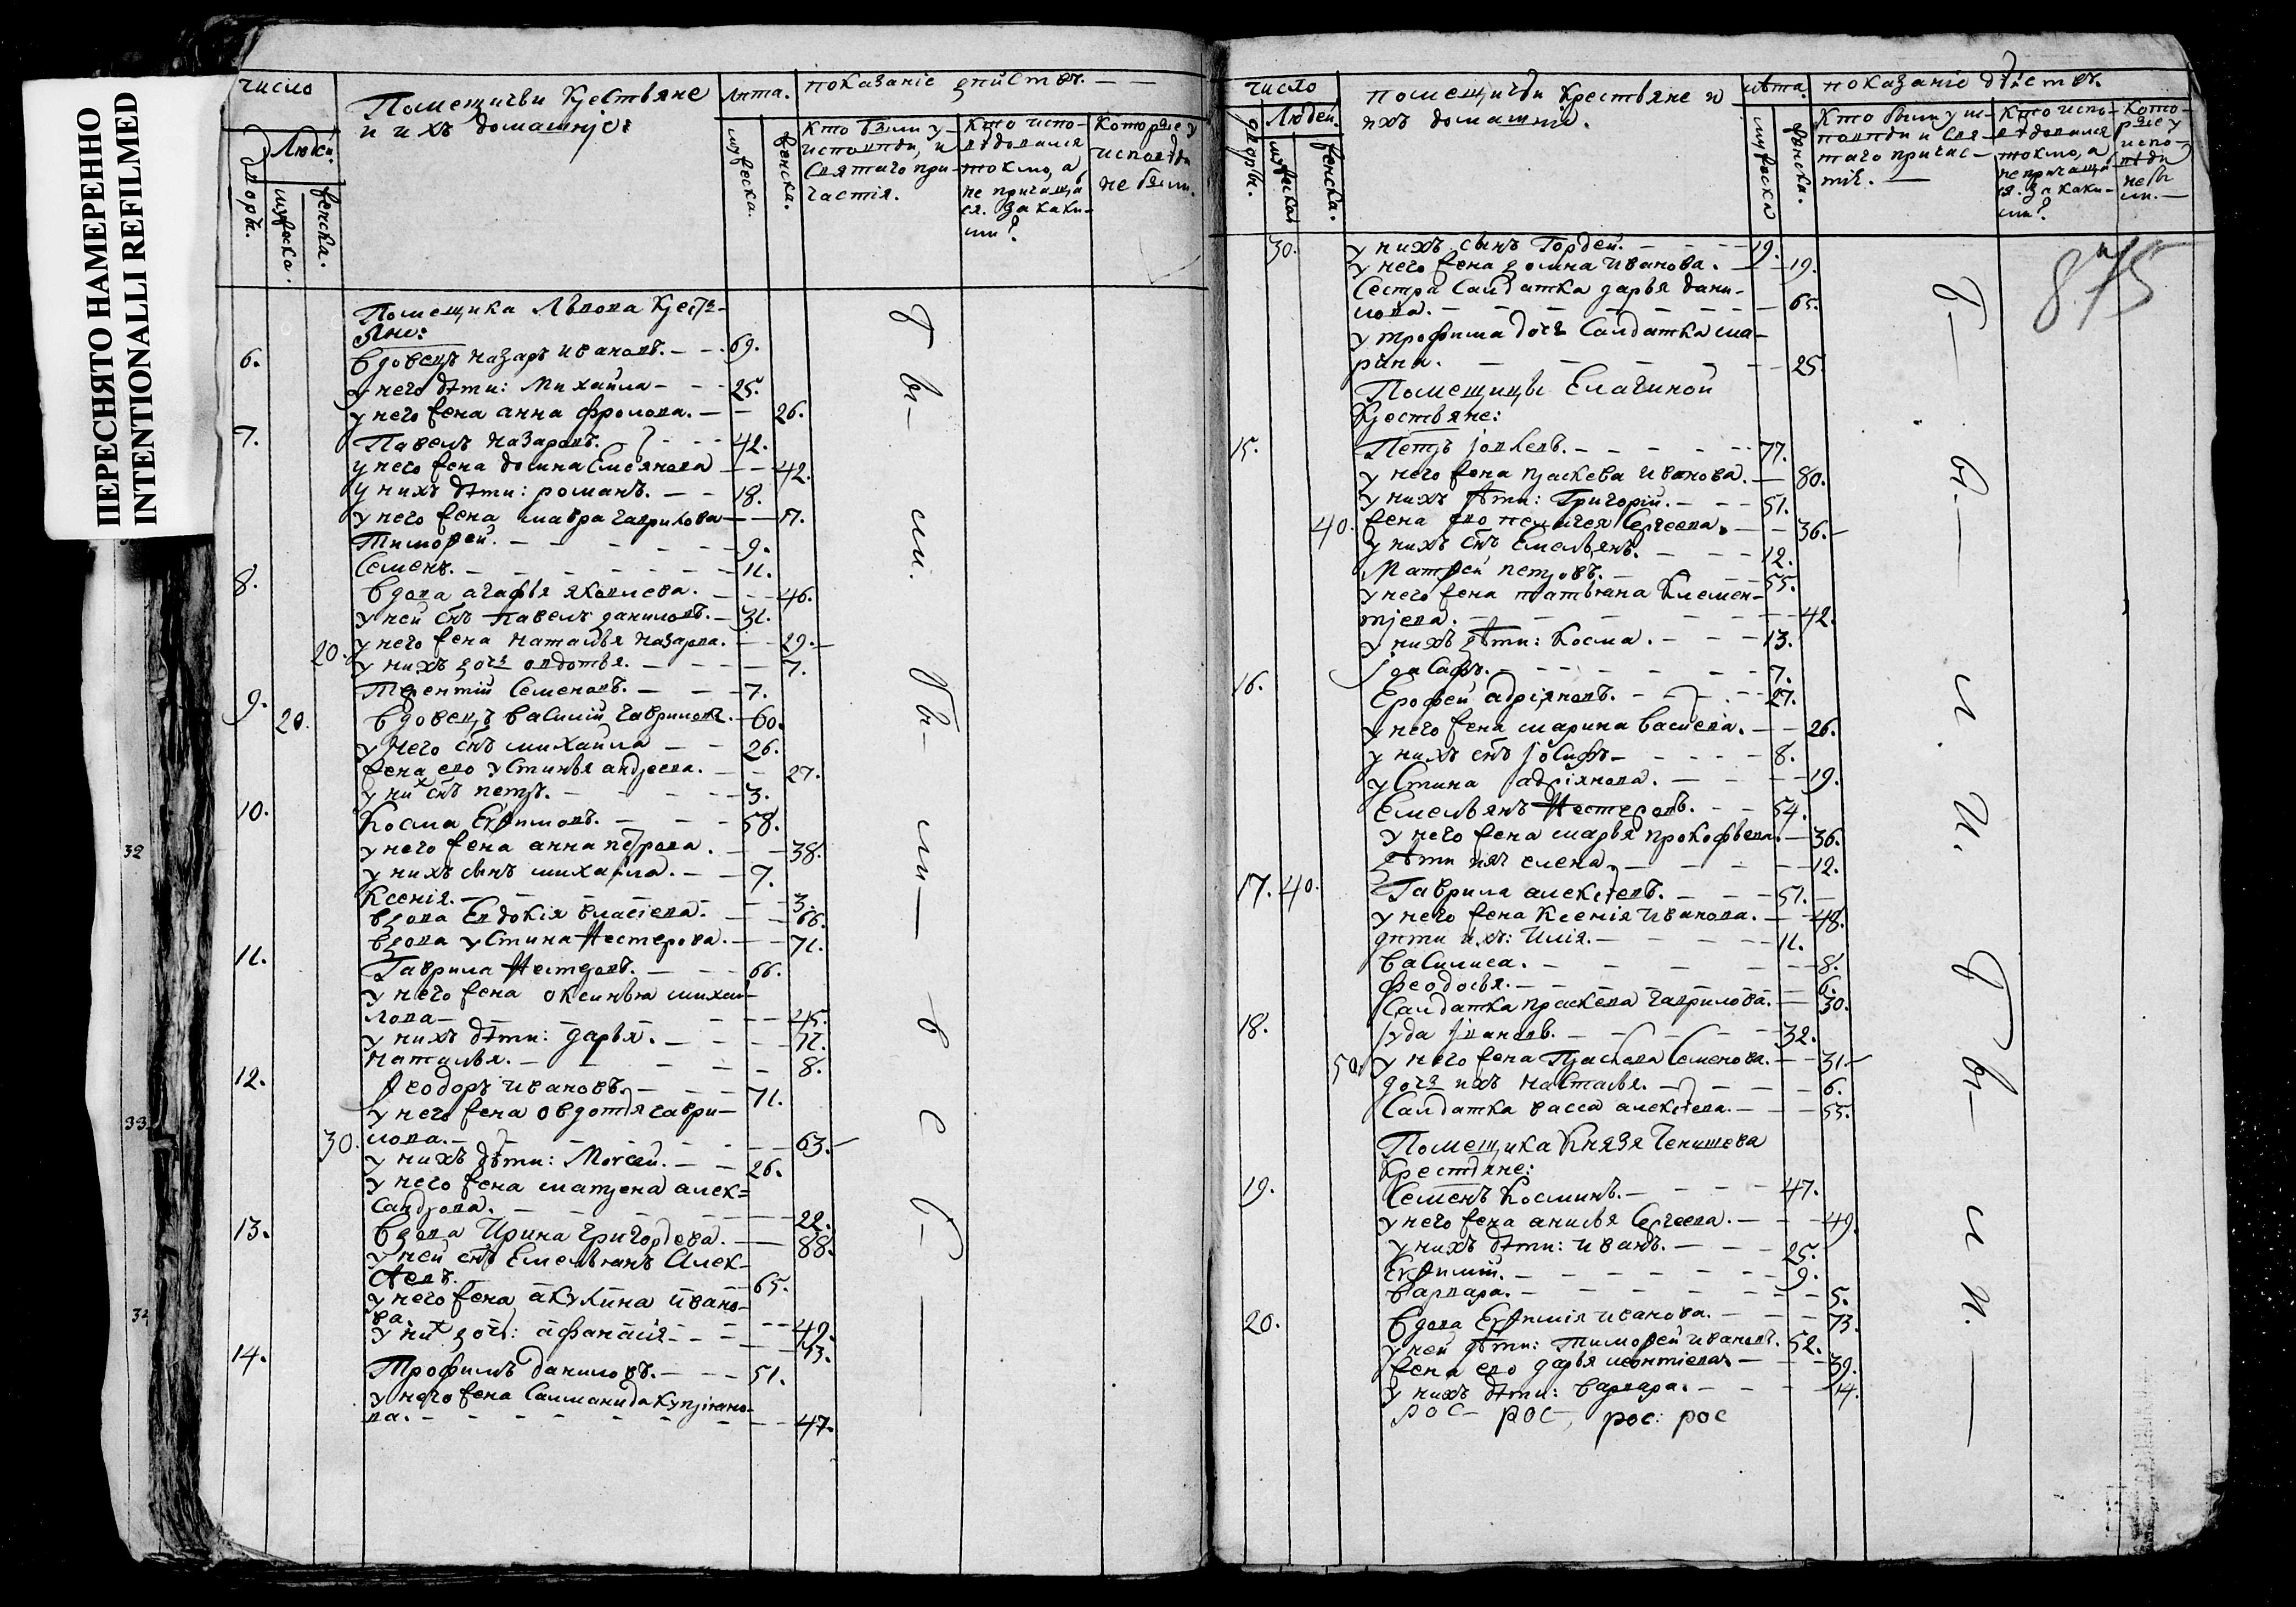 ПЕРЕСНЯТО НАМЕРЕННО
INTENTIONALLI REFILMED
число
Помещичьи крестьяне
и ихъ домашніе:
лѣта.
показаніе дѣйствъ.
дворы.
Людей.
мужеска.
женска.
мужеска.
женска.
Кто были у
исповѣди, и
святаго при-
частія.
Кто испо-
вѣдовался
токмо, а
не причаща
ся. За каки-
ми?
Которые у
исповѣди
не были.
Помещика Львова крестъ-
яне:
6. вдовецъ назаръ ивановъ. 69.
у него дѣти: Михайла 25.
у него жена анна фролова. 26.
7. Павелъ назаровъ. 42.
у него жена домна Емелянова 42.
у нихъ дѣти: романъ. 18.
у него жена мавра гаврилова 17.
Тимоѳей. 9.
Семенъ. 11.
8. вдова агафья яковлева. 46.
у ней снъ павелъ даниловъ. 31.
20. у него жена наталья назарова. 29.
у нихъ дочь овдотья. 7.
Терентій Семеновъ. 7.
9. 20. вдовецъ василій гавриловъ. 60.
у него снъ михайла 26.
жена его устинья андреева. 27.
у них снъ петръ. 3.
10. Косма Евѳимовъ. 58.
у него жена анна петрова. 38.
у нихъ сынъ михайла. 7.
Ксенія. 3.
вдова Евдокія власіева. 66.
вдова устина Нестерова. 71.
11. Гаврила Нестеровъ. 66.
у него жена оксинья михаи-
лова 45.
у нихъ дѣти: дарья. 12.
наталья. 8.
12. Ѳеодоръ ивановъ. 71.
у него жена овдотя гаври-
30. лова. 63.
у нихъ дѣти: Моѵсей. 26.
у него жена матрена алек=
сандрова. 22.
13. вдова Ирина григорьева. 88.
у ней снъ Емельянъ Алек-
сѣевъ. 65.
у него жена акулина ивано-
ва. 49.
у них дочь: афанасія 13.
14. Трофимъ даниловъ. 51.
у него жена Саломанида купріяно-
ва. 47.
бы-
ли.
бы-
ли
все
число
помещичьи крестьяне и
ихъ домашніи.
лѣта.
показаніе дѣйствъ.
дворы.
Людей.
мужеска
женска.
мужеска
женска.
Кто были у ис-
повѣди и свя-
таго причас-
тія.
Кто испо-
вѣдовался
токмо, а
не причаща
ся. за каки-
ми?
Кото-
рые у
испо-
вѣди
не бы
ли.
875
30. у нихъ сынъ Гордей. 19.
у него жена домна иванова. 19.
Сестра Салдатка дарья дани-
лова. 65.
у трофима дочь Салдатка ма-
рина. 25.
Помещицы Елагиной
крестьяне:
15. Петръ Іовлевъ. 77.
у него жена праскева иванова. 80.
у нихъ дѣти: Григорій. 51.
40. жена его пелагея Сергеева. 36.
у нихъ снъ Емельянъ. 12.
Матѳей петровъ. 55.
у него жена татьяна клемен-
тіева. 42.
у нихъ дѣти: Косма. 13.
Іоасафъ. 7.
16. Ерофей адріяновъ. 27.
у него жена марина васиева. 26.
у нихъ снъ Іосифъ 8.
устина адріянова. 19.
Емельянъ Нестеровъ. 54.
у него жена марья прокофьева. 36.
дѣти ихъ елена 12.
17. 40. Гаврила алексѣевъ. 51.
у него жена ксенія иванова. 48.
дѣти ихъ: Илія. 11.
василиса. 8.
феодосья. 6.
Салдатка праскева гаврилова. 30.
18. Іуда Івановъ. 32.
50. у него жена Праскева Семенова. 31.
дочь ихъ настасья. 6.
Салдатка васса алексѣева. 55.
Помещика Князя Тенишева
крестьяне:
19. Семенъ Косминъ. 47.
у него жена анисья Сергеева. 49.
у нихъ дѣти: иванъ. 25.
Евѳимій. 9.
варвара. 5.
20. вдова Евѳимія иванова. 73.
у ней дѣти: Тимоѳей ивановъ. 52.
жена его дарья леонтіева 39.
у нихъ дѣти: варвара. 14.
рос рос, рос: рос
бы-
ли.
бы-
ли.
32
33